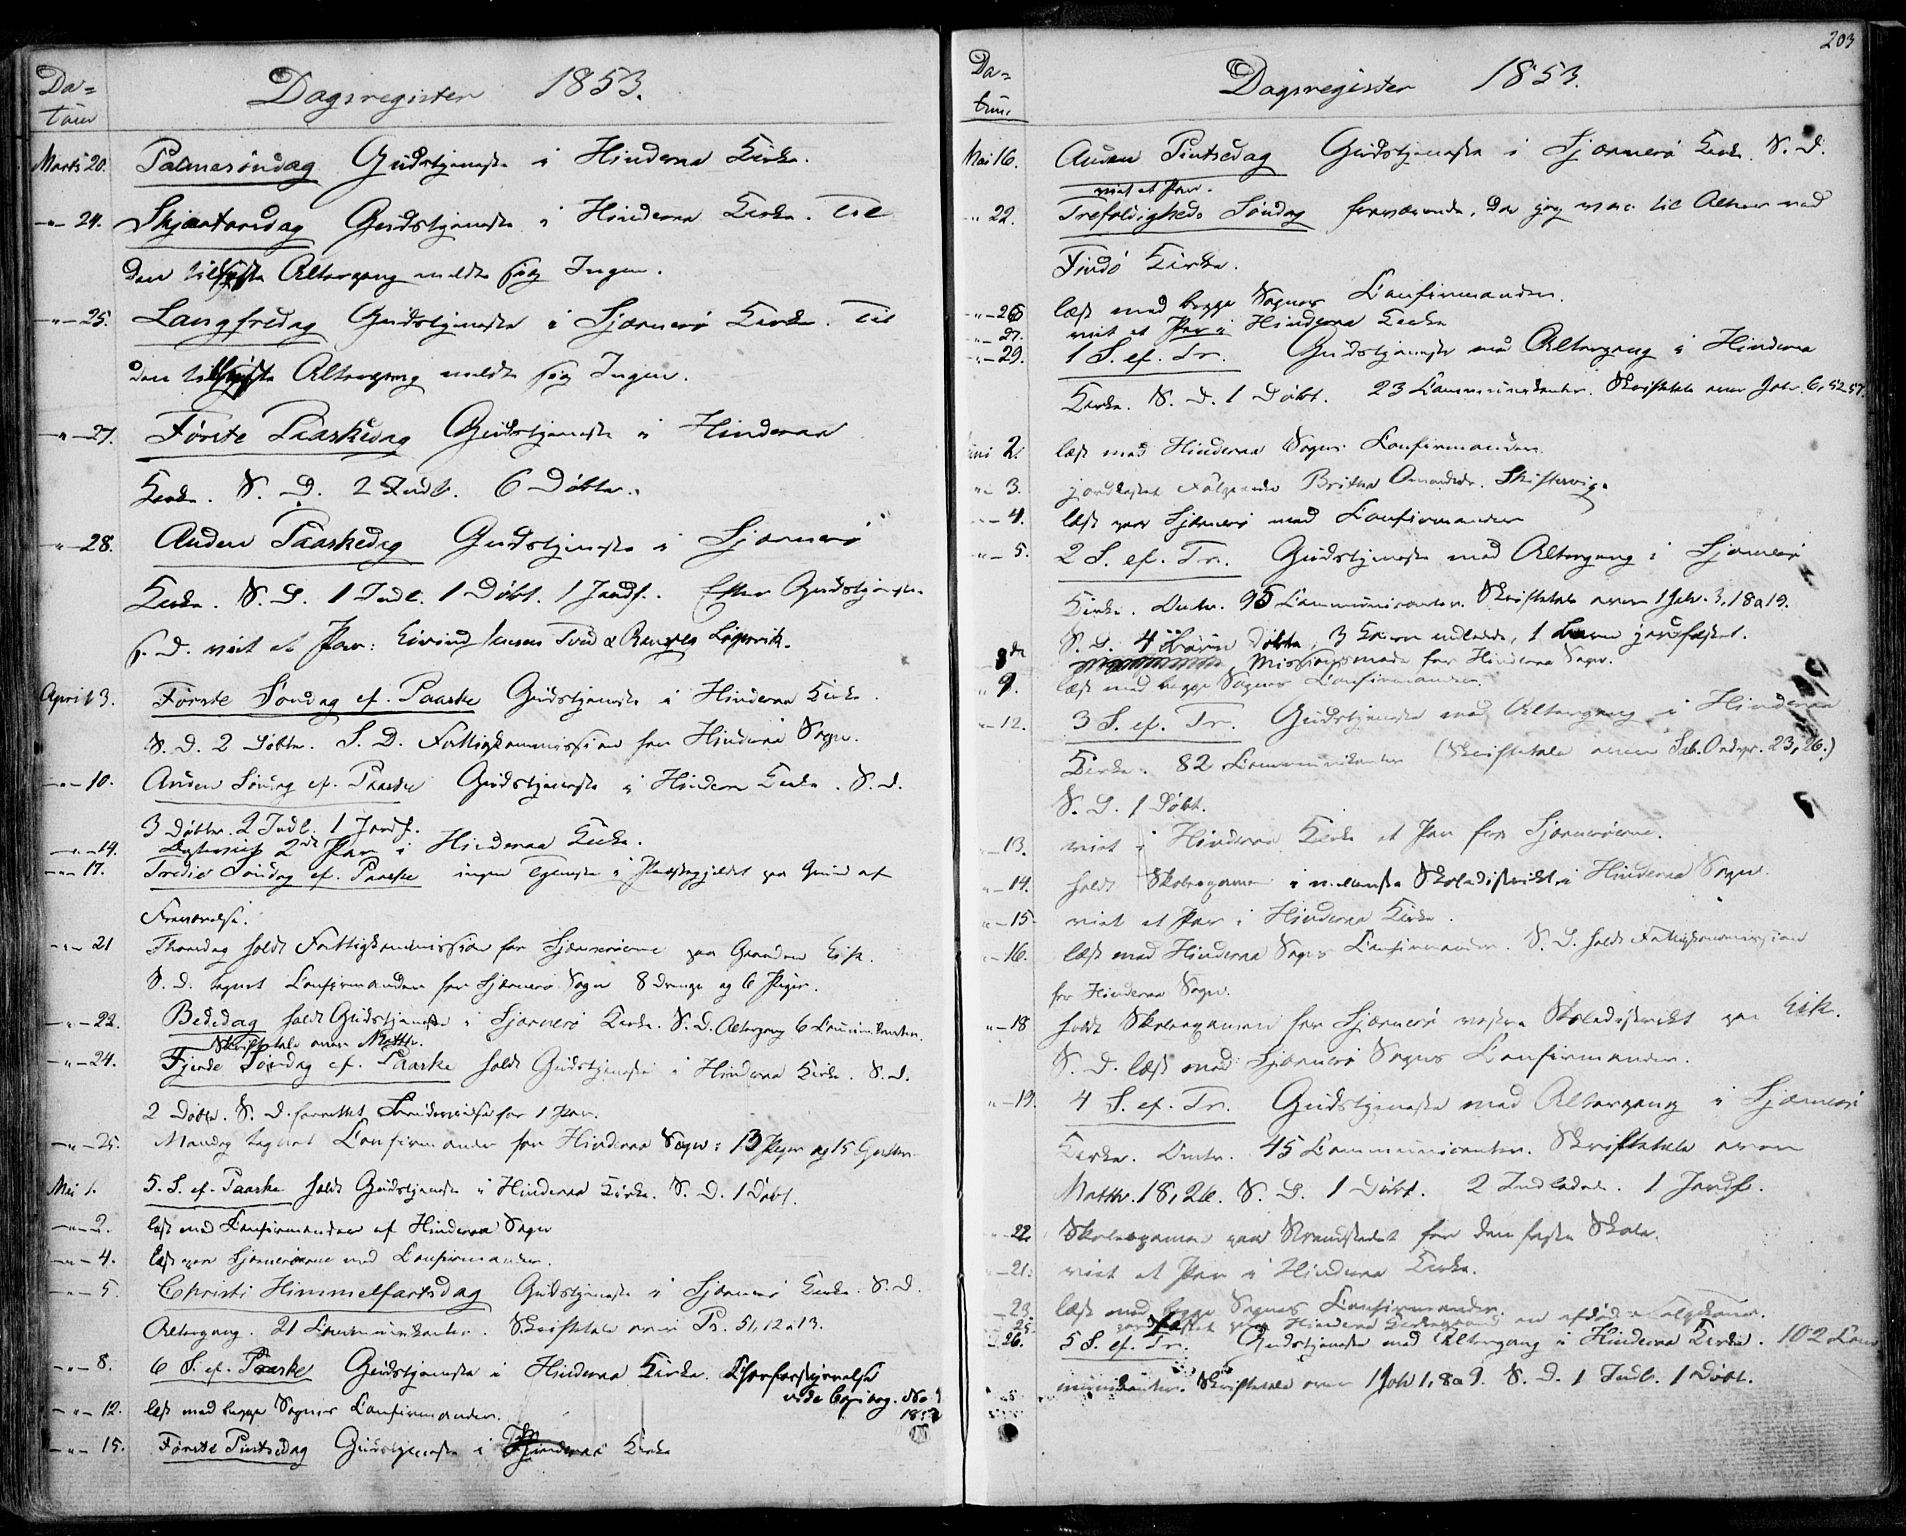 Da=
tum
Dagsregister 1853.
Marts 20. Palmesöndag Gudstjeneste i Hinderaa Kirke.
-"- 24. Skjærtorsdag Gudstjeneste i Hinderaa Kirke. Til
den Altergang meldte sig Ingen.
-"- 25. Langfredag Gudstjeneste i Sjærnerö Kirke. Til
den Altergang meldte sig Ingen.
-"- 27. Förste Paaskedag Gudstjeneste i Hinderaa
Kirke. S. D. 2 Indl. 6 Döbte.
-"- 28. Anden Paaskedag Gudstjeneste i Sjærnerö
Kirke. S. D. 1 Indl. 1 Döbt. 1 Jordf. Efter Gudstjeneste
s. D. viet et Par: Eivind Jensen
April 3. Förste Söndag ef. Paaske Gudstjeneste i Hinderaa Kirke.
S. D. 2 Döbte. S. D. Fattigkommission for Hinderaa Sogn.
-"- 10. Anden Söndag ef. Paaske Gudstjeneste i Hinderaa Kirke. S. D.
3 Döbte. 2 Indl. 1 Jordf.
-"- 14. 2de Par i Hinderaa Kirke.
-"- 17. Tredie Söndag ef. Paaske ingen Tjeneste i Præstegjeldet paa Grund af
Fraværelse.
-"- 21 Thorsdag holdt Fattigkommission for Sjærneröerne paa Gaarden Eik.
S. D. tegnet Confirmander for Sjærnerö Sogn 8 Drenge og 6 Piger.
-"- 22. Bededag holdt Gudstjeneste i Sjærnerö Kirke. S. D. Altergang 6 Communikanter.
Skriftetale over Matth.
-"- 24. Fjerde Söndag ef. Paaske holdt Gudstjeneste i Hinderaa Kirke. S. D.
2 Döbte. S. D. forrettet for 1 Par.
-"- 25. Mandag tegnet Confirmander for Hinderaa Sogn: 13 Piger og 15 Gutter.
Mai 1. 5. S. ef. Paaske holdt Gudstjeneste i Hinderaa Kirke. S. D. 1 Döbt.
-"- 2. læst med Confirmander af Hinderaa Sogn
-"- 4. læst paa Sjærneröerne med Confirmander.
-"- 5. Christi Himmelfartsdag Gudstjeneste i Sjærnerö Kirke. S. D.
Altergang. 21 Communikanter. Skriftetale over Ps. 51, 12 a 13.
-"- 8. 6 S. ef. Paaske Gudstjeneste i Hinderaa Kirke.
vide Copibog. No
-"- 12. læst med begge Sognes Confirmander.
-"- 15. Förste Pintsedag Gudstjeneste i Hinderaa Kirke
203
Da=
tum.
Dagsregister 1853.
Mai 16. Anden Pintsedag Gudstjeneste i Sjærnerö Kirke. S. D.
viet et Par.
" 22. Trefoldigheds Söndag fraværende, da jeg var til Alters ved
Findö Kirke.
-"- 26 læst med begge Sognes Confirmander.
-"- 27. viet et Par i Hinderaa Kirke
-"- 29. 1 S. ef. Tr. Gudstjeneste med Altergang i Hinderaa
Kirke. S. D. 1 Döbt. 23 Communikanter. Skriftetale over Joh. 6, 52-57.
Juni 2. læst med Hinderaa Sogns Confirmander.
"- 3. jordfæstet Britha
"- 4. læst paa Sjærnerö med Confirmander
"- 5. 2 S. ef. Tr. Gudstjeneste med Altergang i Sjærnerö
Kirke. Omtr. 95 Communicanter. Skriftetale over 1 Joh. 3, 18 a 19.
S. D. 4 Börn Döbte, 3 Koner indledte, 1 Barn jordfæstet.
8de Missionsmöde for Hinderaa Sogn.
" 9. læst med begge Sognes Confirmander.
"- 12. 3 S. ef. Tr. Gudstjeneste med Altergang i Hinderaa
Kirke. 82 Communikanter (Skriftetale over Sal. Ordspr. 23, 26.)
S. D. 1 Döbt.
"- 13. viet i Hinderaa Kirke et Par fra Sjærneröerne.
"- 14. holdt Skoleexamen i Skoledistrikt i Hinderaa Sogn.
"- 15 viet et Par i Hinderaa Kirke.
"- 16. læst med Hinderaa Sogns Confirmander. S. D. holdt Fattigkommission
for Hinderaa Sogn.
"- 18 holdt Skoleexamen for Sjærnerö vestre Skoledistrikt paa Eik.
S. D. læst med Sjærnerö Sogns Confirmander.
"- 19. 4 S. ef. Tr. Gudstjeneste med Altergang i Sjærnerö
Kirke. Omtr. 45 Communicanter. Skriftetale over
Matth. 18, 26. S. D. 1 Döbt. 2 Indledede. 1 Jordf.
"- 22 Skoleexamen paa Strandstedet for den faste Skole.
"- 21. viet et Par i Hinderaa Kirke.
- 23. læst med begge Sognes Confirmander.
25. jordfæstet paa Hinderaa Kirkegaard en afdöd
- 26. 5 S. ef. Tr. Gudstjeneste med Altergang i Hinderaa Kirke. 102 Com
munikanter. Skriftetale over 1 Joh 1, 8 a 9. S. D. 1 Indl. 1 Döbt.